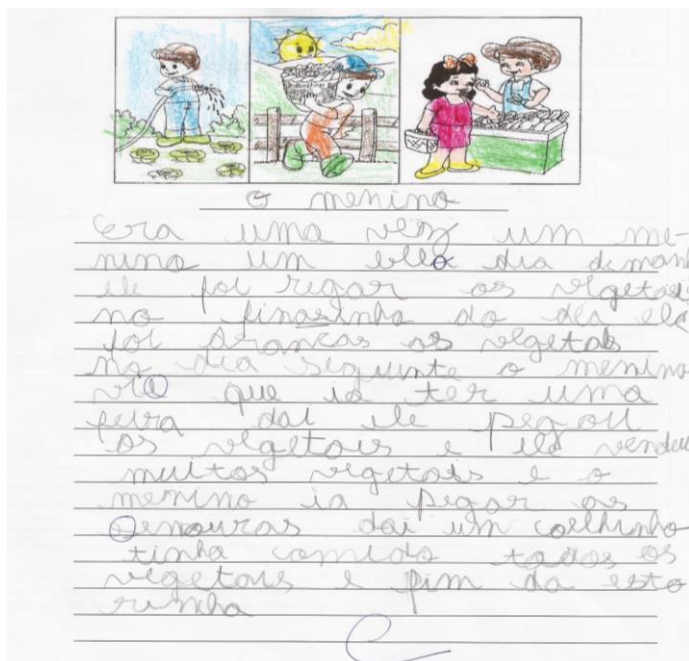 o menino
Era uma vez um me-
nino um bllo dia de manh
ele foi regar os vegetais
no finasinho do dia ele
foi arancas os vegetais
no dia seguinte o menino
viu que ia ter uma
feira daí ele pegou
os vegetais e ele vendeu
muitos vegetais e o
menino ia pegar as
cenouras daí um coelhinho
tinha comido todos os
vegetais e fim da esto
rinha